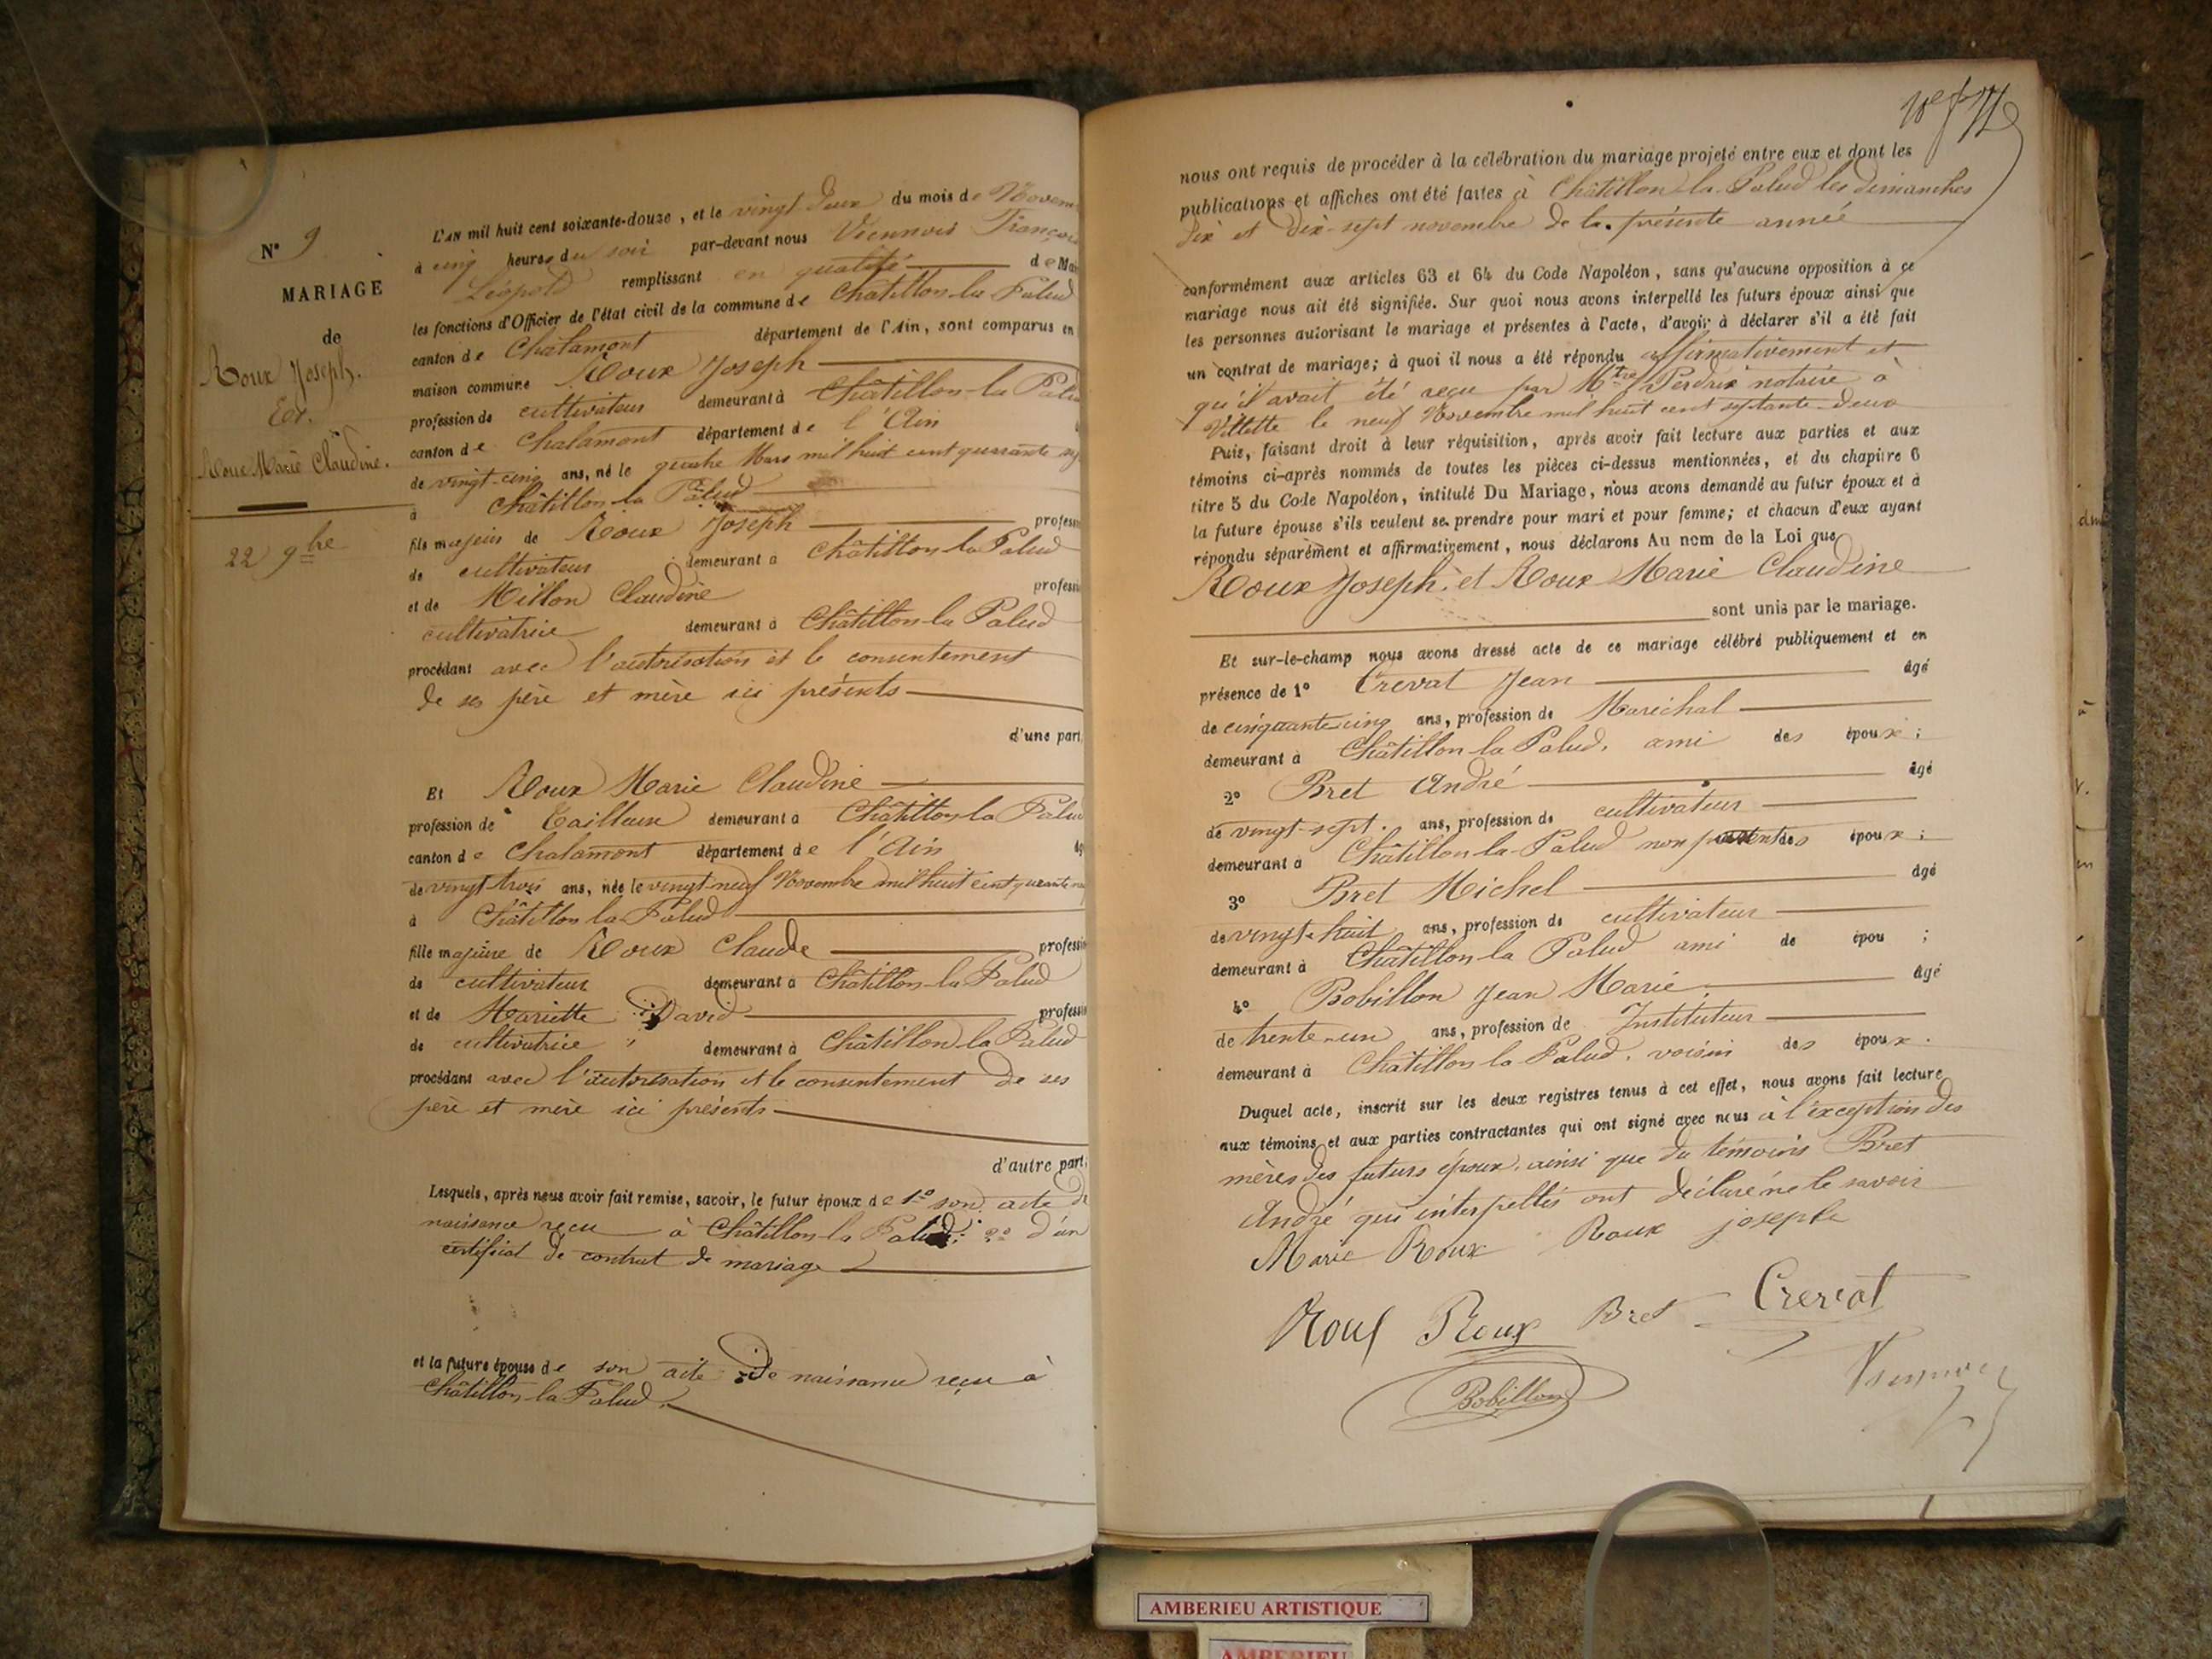 N° 9
MARIAGE
de
Roux Joseph.
Et.
Roux Marie Claudine.
22 9bre
L'AN mil huit cent soixante-douze, et le vingt deux du mois de Novem
à cinq heures du soir par-devant nous Viennois François
Léopold remplissant en qualité de Mai
les fonctions d'Officier de l'état civil de la commune de Châtillon-la Palud
canton de Chalamont département de l'Ain, sont comparus en
maison commune Roux Joseph
profession de cultivateur demeurant à Châtillon-la Palu
canton de Chalamont département de l'Ain
de vingt-cinq ans, né le quatre Mars mil huit cent quarante sep
à Châtillon la Palud
fils majeur de Roux Joseph profess
de cultivateur demeurant à Châtillon la Palud
et de Millon Claudine professi
cultivatrice demeurant à Châtillon-la Palud
procédant avec l'autorisation et le consentement
de ses père et mère ici présents
d'une part,
Et Roux Marie Claudine
profession de Tailleuse demeurant à Châtillon-la Palud
canton de Chalamont département de l'Ain âg
de vingt trois ans, née le vingt-neuf Novembre mil huit cent quarante
à Châtillon la Palud
fille majeure de Roux Claude professi
de cultivateur demeurant à Châtillon-la Palud
et de Mariette David professi
de cultivatrice demeurant à Châtillon la Palud
procédant avec l'autorisation et le consentement de ses
père et mère ici présents
d'autre part.
Lesquels, après nous avoir fait remise, savoir, le futur époux de 1° son acte de
naissance reçu à Châtillon-la Palud; 2° d'un
certificat de contrat de mariage
et la future épouse de son acte de naissance reçu à
Châtillon-la Palud.
nous ont requis de procéder à la célébration du mariage projeté entre eux et dont les
publications et affiches ont été faites à Châtillon-la-Palud les dimanches
dix et dix-sept novembre de la présente année
conformément aux articles 63 et 64 du Code Napoléon, sans qu'aucune opposition à ce
mariage nous ait été signifiée. Sur quoi nous avons interpellé les futurs époux ainsi que
les personnes autorisant le mariage et présentes à l'acte, d'avoir à déclarer s'il a été fait
un contrat de mariage; à quoi il nous a été répondu affirmativement et
qu'il avait été reçu par Mtre Perdrix notaire à
Villette le neuf Novembre mil huit cent septante-deux
Puis, faisant droit à leur réquisition, après avoir fait lecture aux parties et aux
témoins ci-après nommés de toutes les pièces ci-dessus mentionnées, et du chapitre 6
titre 5 du Code Napoléon, intitulé Du Mariage, nous avons demandé au futur époux et à
la future épouse s'ils veulent se prendre pour mari et pour femme; et chacun d'eux ayant
répondu séparément et affirmativement, nous déclarons Au nom de la Loi que
Roux Joseph. et Roux Marie Claudine
sont unis par le mariage.
Et sur-le-champ nous avons dressé acte de ce mariage célébré publiquement et en
présence de 1° Crevat Jean âgé
de cinquante cinq ans, profession de Maréchal
demeurant à Châtillon la Palud. ami des époux;
2° Bret André âgé
de vingt-sept. ans, profession de cultivateur
demeurant à Châtillon-la-Palud non parent des époux;
3° Bret Michel âgé
de vingt-huit ans, profession de cultivateur
demeurant à Châtillon-la Palud ami de épou ;
4° Bobillon Jean Marie âgé
de trente-un ans, profession de Instituteur
demeurant à Châtillon la Palud. voisin des époux.
Duquel acte, inscrit sur les deux registres tenus à cet effet, nous avons fait lecture
aux témoins et aux parties contractantes qui ont signé avec nous à l'exception des
mères des futurs époux, ainsi que du témoins Bret
André qui interpellés ont déclaré ne le savoir
Marie Roux Roux joseph
Roux Roux Bret Crevat
Bobillon
AMBERIEU ARTISTIQUE
AMBERIEU